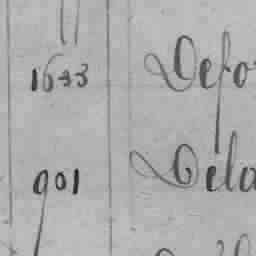 1643 Defo
901 Dela